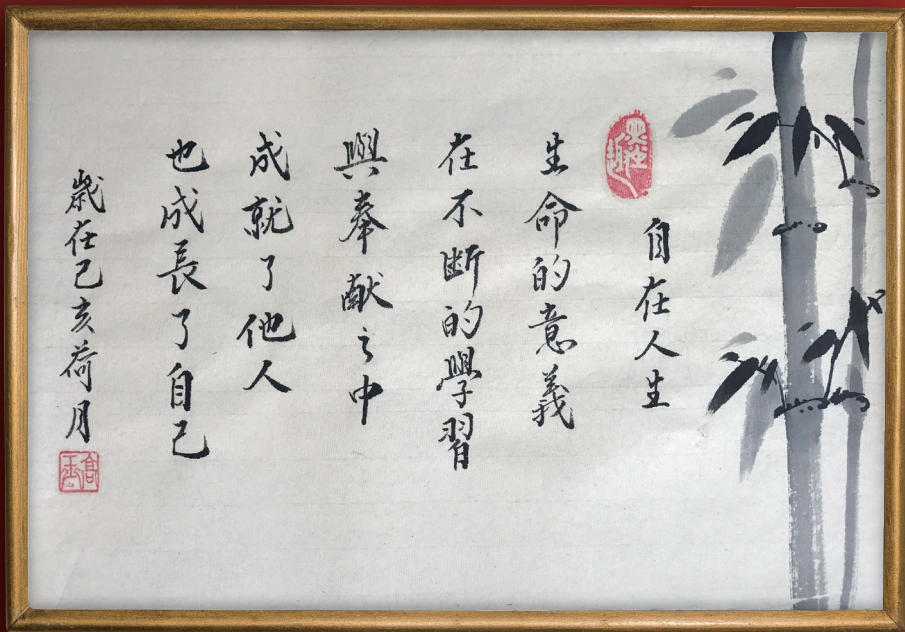 自在人生
生命的意義
在不斷的學習
與奉獻之中
成就了他人
也成長了自己
歲在己亥荷月